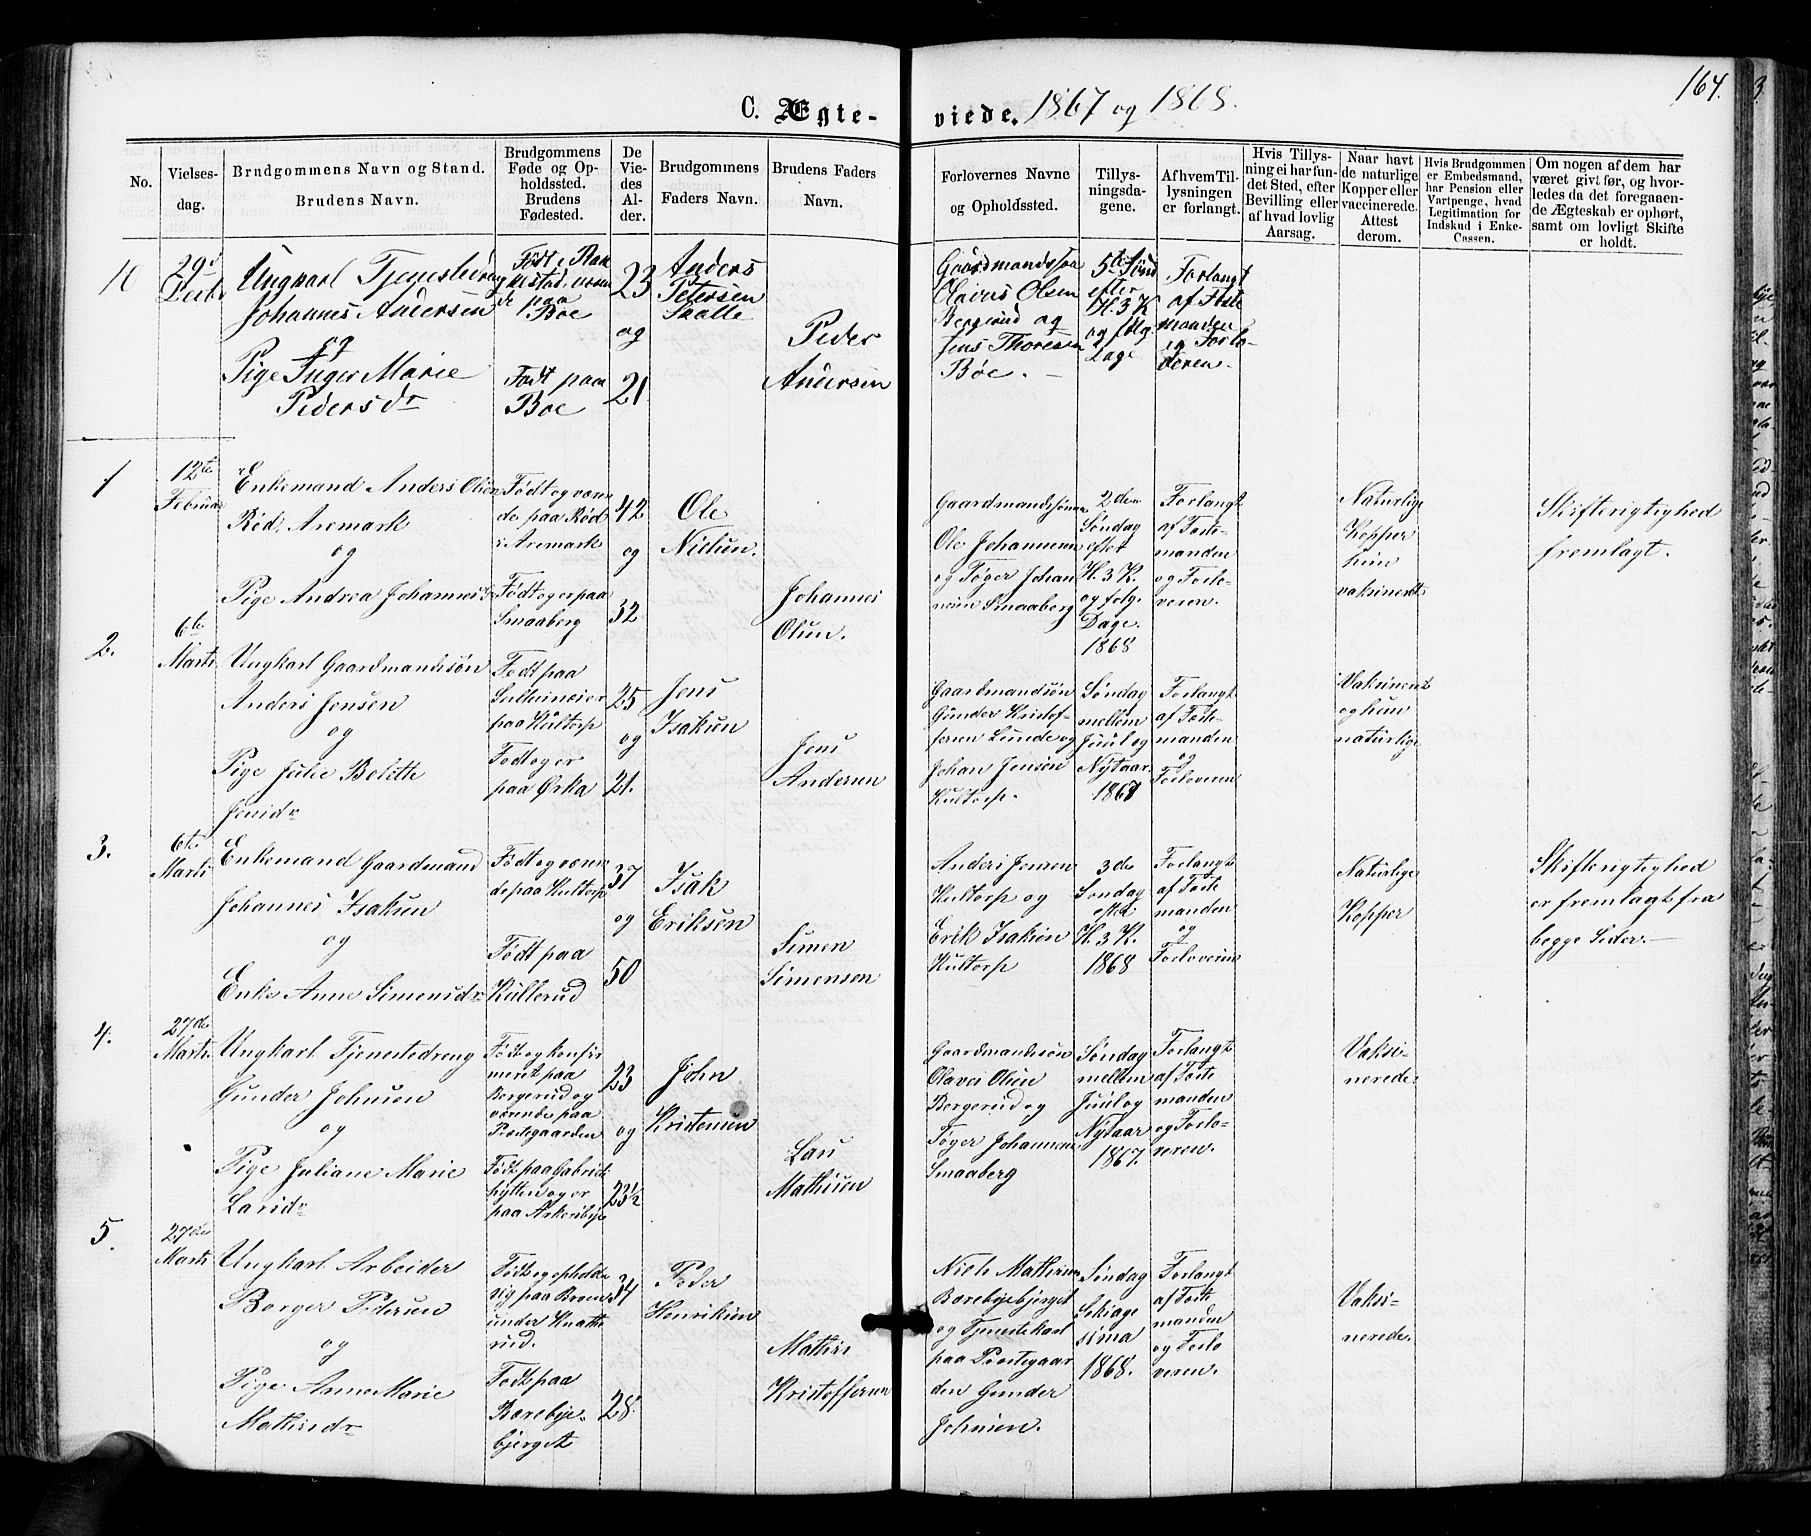 164.
C. Ægteviede. 1867 og 1868.
No.
Vielsesdag.
Brudgommens Navn og Stand.
Brudens Navn.
Brudgommens
Føde og Op-
holdssted.
Brudens
Fødested.
De
Vie-
des
Al-
der.
Brudgommens
Faders Navn.
Brudens Faders
Navn.
Forlovernes Navne
og Opholdssted.
Tillys-
ningsda-
gene.
Af hvem Til-
lysningen
er forlangt.
Hvis Tillys-
ning ei har fun-
det Sted, efter
Bevilling eller
af hvad lovlig
Aarsag.
Naar havt
de naturlige
Kopper eller
vaccinerede.
Attest
derom.
Hvis Brudgommen
er Embedsmand,
har Pension eller
Vartpenge, hvad
Legitimation for
Indskud i Enke-
Cassen.
Om nogen af dem har
været givt før, og hvor-
ledes da det foregaaen-
de Ægteskab er ophørt,
samt om lovligt Skifte
er holdt.
10
29de
Decbr
Ungkarl Tjenestedreng
Johannes Andersen
og
Pige Inger Marie
Pedersdr
Født i
de paa
Boe
Født paa
Boe
23
og
21.
Anders
Petersen
Peder
Andersen
Gaardmandssøn
Olavus Olsen
Bergerud og
Jens Thoresen
Bøe. —
5te Sønd
efter
H. 3 K
og følg.
Dage
Forlangt
af Foste
manden
og Forlo-
veren.
1
12te
Februar
Enkemand Anders Olsen
Rød, Aremark
og
Pige Andrea Johannesdr
Født og væren
de paa Rød
i Aremark
Født og er paa
Smaaberg
42
og
32.
Ole
Nielsen.
Johannes
Olsen.
Gaardmandssønne
Ole Johannesen
og Tøger Johan
nesen Smaaberg
2den
Søndag
efter
H. 3 K.
og følg.
Dage.
1868
Forlangt
af Foste-
manden
og Forlo-
veren.
Naturlige
Kopper
hun
vaksineret
Skifterigtighed
fremlagt.
2.
6te
Marts
Ungkarl Gaardmandssøn
Anders Jensen
og
Pige Julie Bolette
Jensdr
Født paa
paa Kultorp
Født og er
paa Ørka
25
og
21.
Jens
Isaksen
Jens
Andersen
Gaardmandssøn
Gunder Kristof-
fersen Lunde og
Johan Jensen
Kultorp.
Søndag
mellem
Juul og
Nytaar.
1867
Forlangt
af Foste-
manden
og
Forloveren
Vaksineret
og hun
naturlige
3.
6te
Marts
Enkemand Gaardmand
Johannes Isaksen
og
Enke Anne Simensdr
Født og væren
de paa Kultorp
Født paa
Kullerud
37
og
50
Isak
Eriksen
Simen
Simensen
Anders Jensen
Kultorp og
Erik Isaksen
Kultorp
3de
Søndag
efter
H. 3 K.
1868
Forlangt
af Foste
manden
og
Forloveren
Naturlige
Kopper
Skifterigtighed
er fremlagt fra
begge Sider. —
4.
27de
Marts
Ungkarl Tjenestedreng
Gunder Johnsen
og
Pige Juliane Marie
Larsdr
Født og konfir
meret paa
Bergerud og
værende paa
Prestegaarden
Født paa Gabriels
hytten og er
paa Askeribye
23
og
23½
John
Kristensen
Lars
Mathisen
Gaardmandssøn
Olaves Olsen
Bergerud og
Tøger Johannesen
Smaaberg
Søndag
mellem
Juul og
Nytaar
1867.
Forlangt
af Foste
manden
og Forlo-
veren.
Vaksi-
nerede.
5.
27de
Marts
Ungkarl Arbeider
Borger Pedersen
og
Pige Anne Marie
Mathisdr
Født og opholder
sig paa Broen
under Knatte
rud.
Født paa
Borebye-
bjerget
34
28.
Peder
Henriksen
Mathis
Kristoffersen
Niels Mathisen
Borebyebjerget
og Tjenestekarl
paa Prestegaar
den Gunder
Johnsen.
Søndag
Seksage
sima
1868.
Forlangt
af Foste
manden
og Forlo
veren.
Vaksi-
nerede.